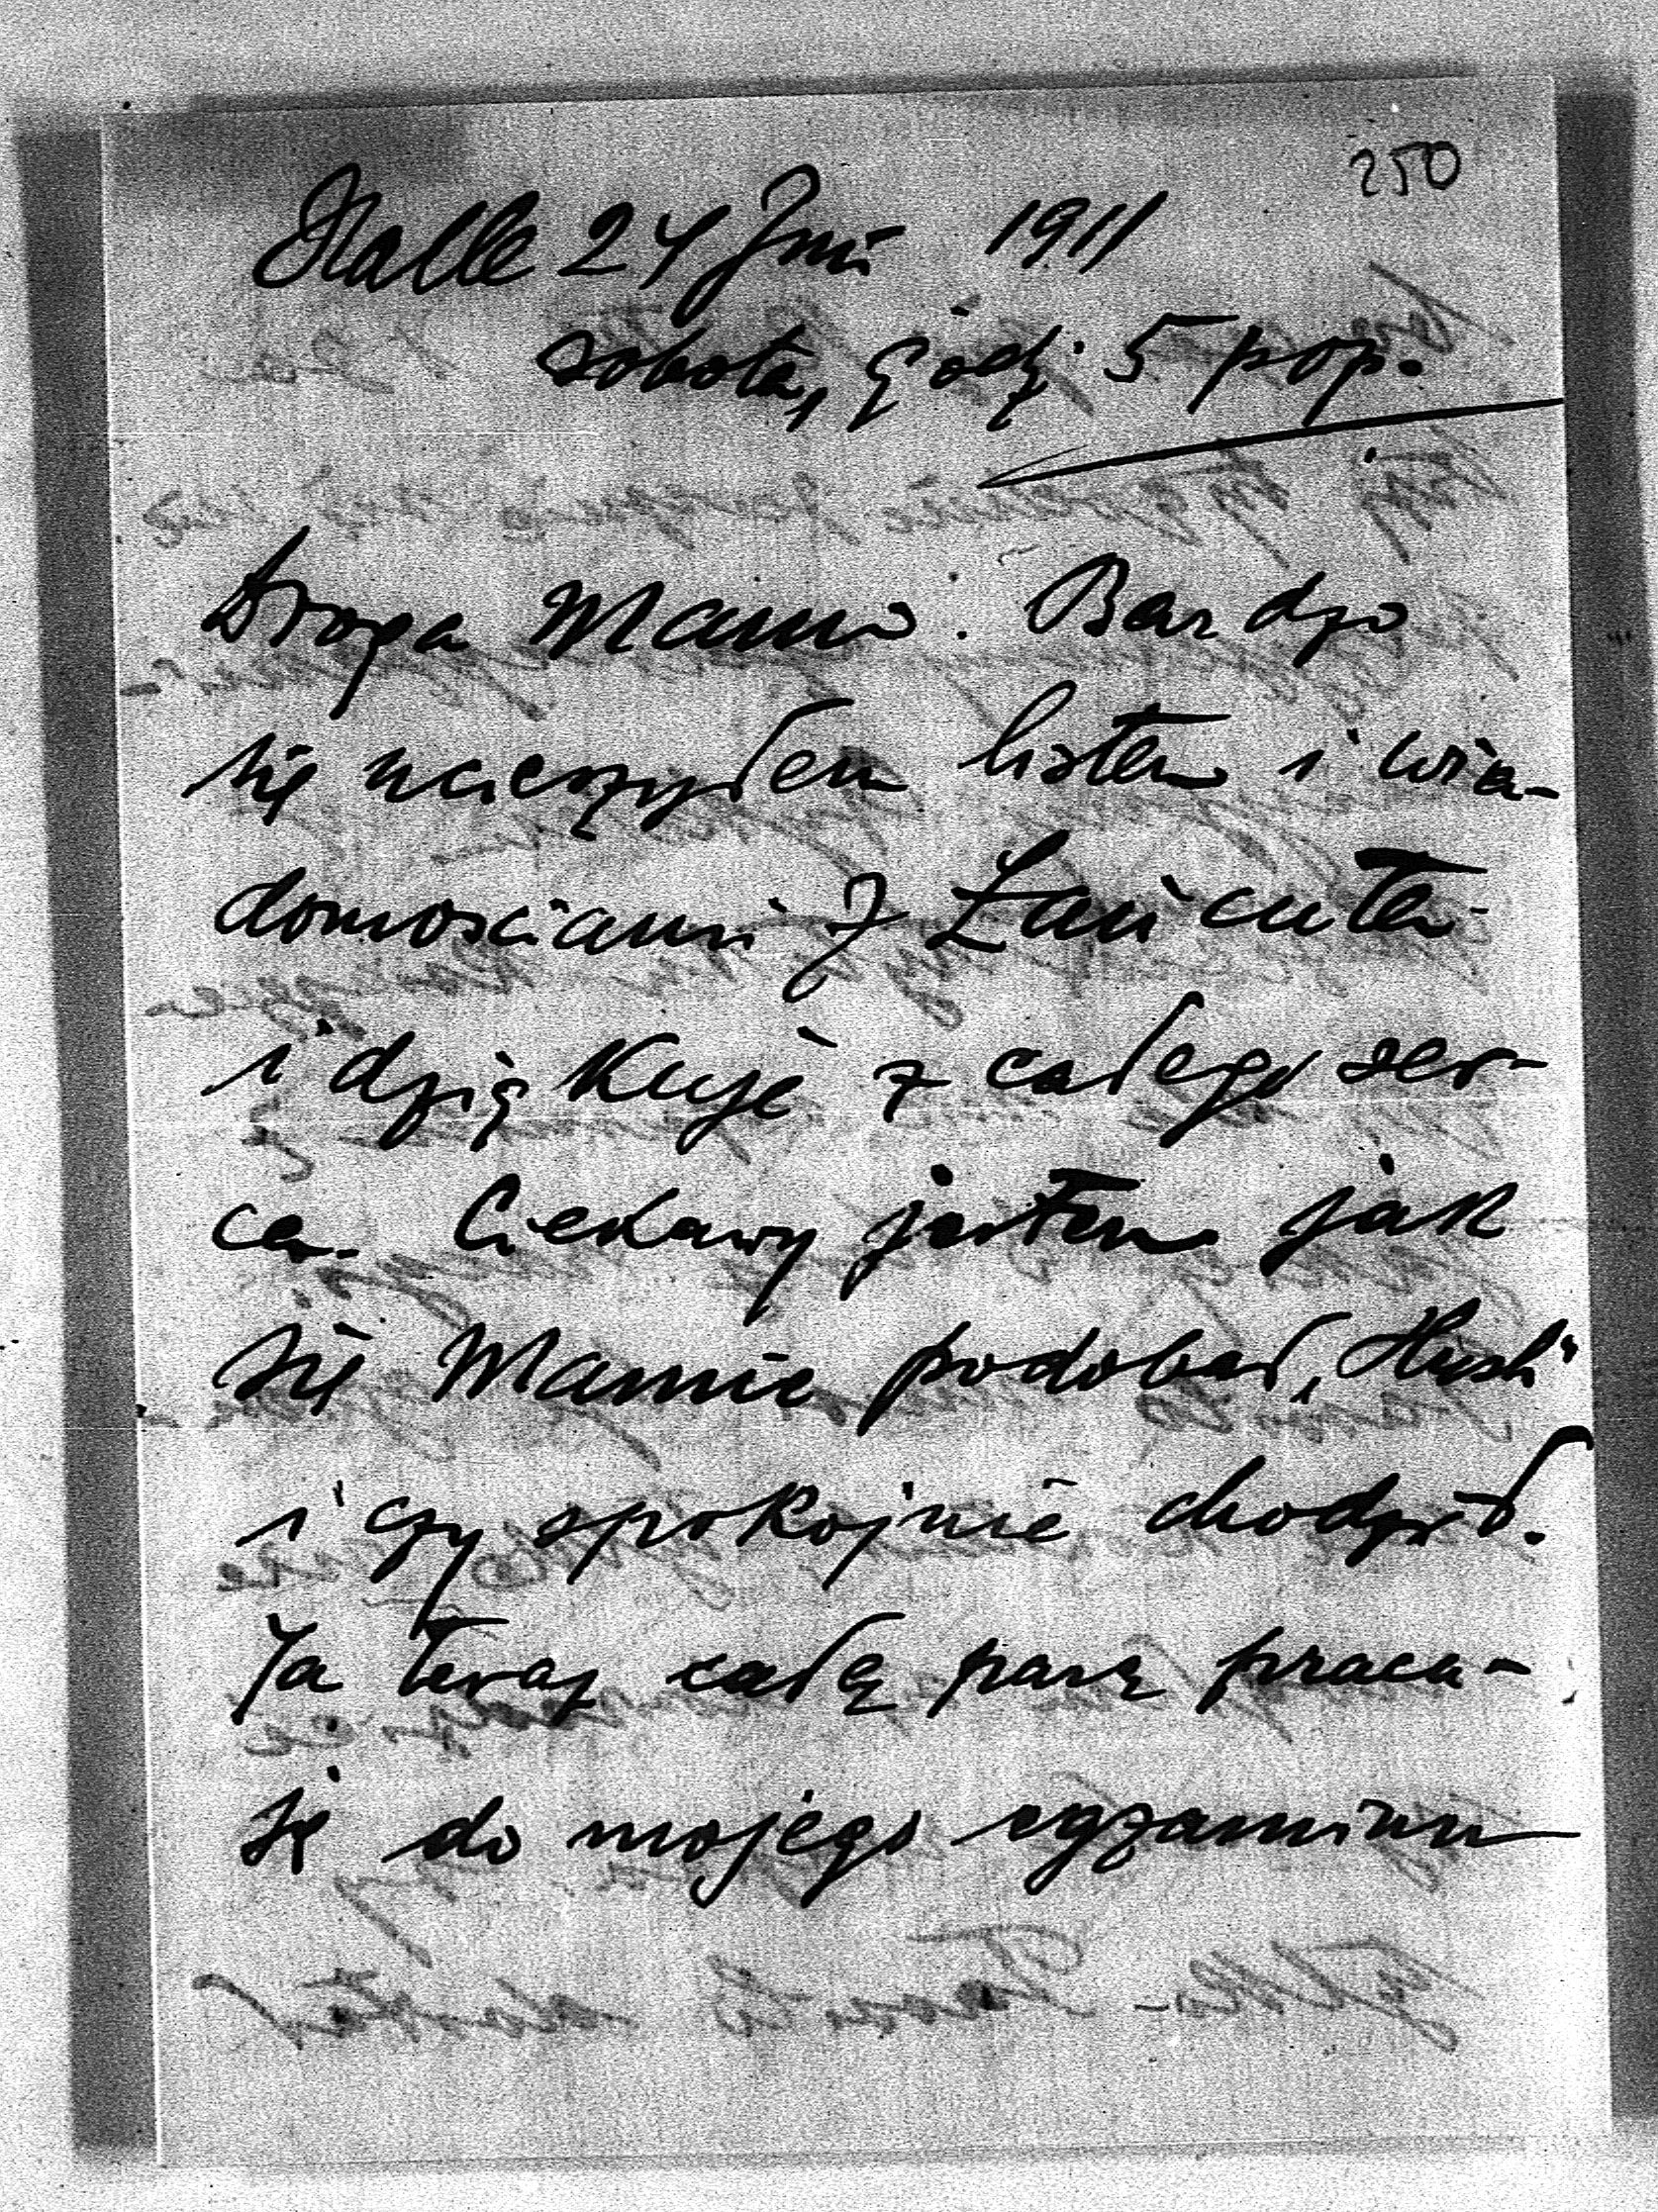 250
Halle 24 Juni 1911
sobota, godz. 5 pop.
Droga Mamo. Bardzo
się ucieszyłem listem i wia-
domościami z Łańcuta
i dziękuję z całego ser-
ca. Ciekawy jestem jak
się Mamie podobał „Hush"
i czy spokojnie chodził.
Ja teraz całą parą pracu-
ję do mojego egzaminu